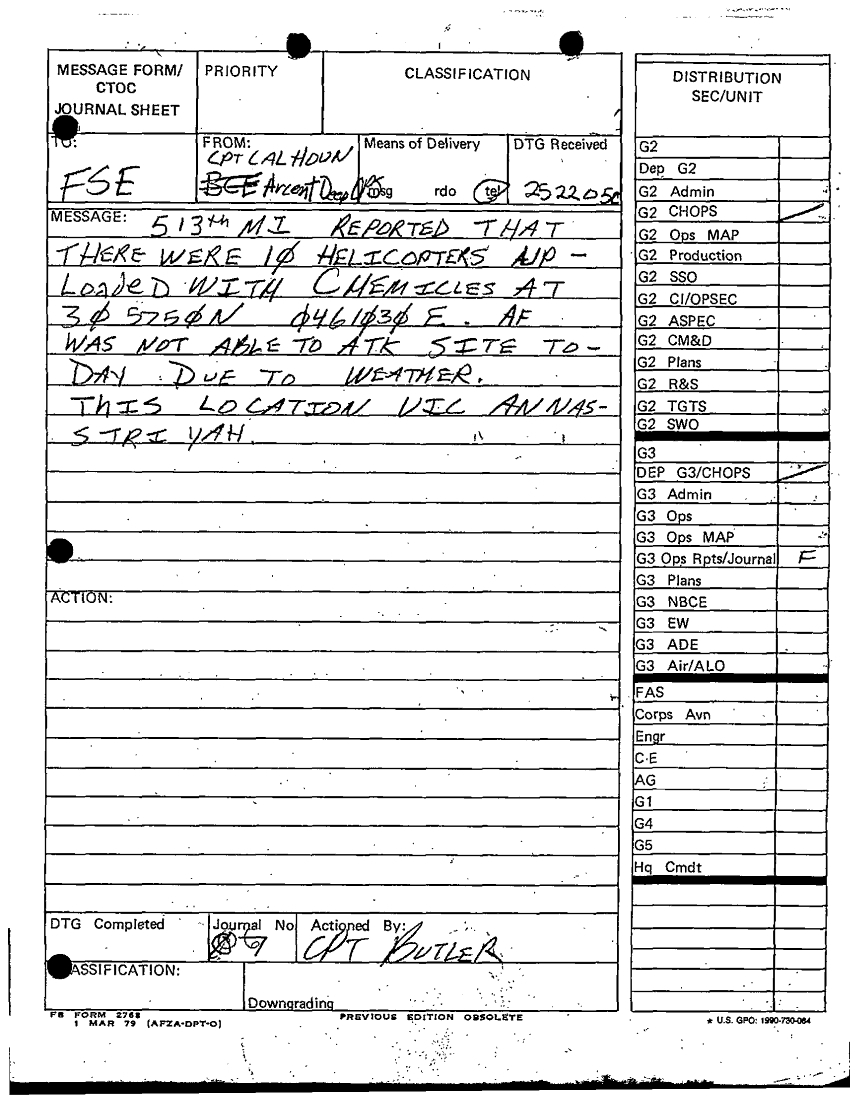 MESSAGE FORM/
CTOC
JOURNAL SHEET
PRIORITY
CLASSIFICATION
TO:
FSE
FROM:
CPT CALHOUN
BCE Arcent Deep OPS
Means of Delivery
msg rdo tel
DTG Received
252205C
MESSAGE: 513th MI REPORTED THAT
THERE WERE 1Ø HELICOPTERS UP-
LOADED WITH CHEMICLES AT
3Ø 575Ø N Ø461Ø3Ø E. AF
WAS NOT ABLE TO ATK SITE TO-
DAY DUE TO WEATHER.
THIS LOCATION VIC AN NAS-
STRIYAH.
ACTION:
DTG Completed
Journal No
67
Actioned By:
CPT BUTLER
ASSIFICATION:
Downgrading
FB FORM 2768
1 MAR 79 (AFZA-DPT-O)
PREVIOUS EDITION OBSOLETE
DISTRIBUTION
SEC/UNIT
G2
Dep G2
G2 Admin
G2 CHOPS
G2 Ops MAP
G2 Production
G2 SSO
G2 CI/OPSEC
G2 ASPEC
G2 CM&D
G2 Plans
G2 R&S
G2 TGTS
G2 SWO
G3
DEP G3/CHOPS
G3 Admin
G3 Ops
G3 Ops MAP
G3 Ops Rpts/Journal F
G3 Plans
G3 NBCE
G3 EW
G3 ADE
G3 Air/ALO
FAS
Corps Avn
Engr
C-E
AG
G1
G4
G5
Hq Cmdt
★ U.S. GPO: 1990-730-064